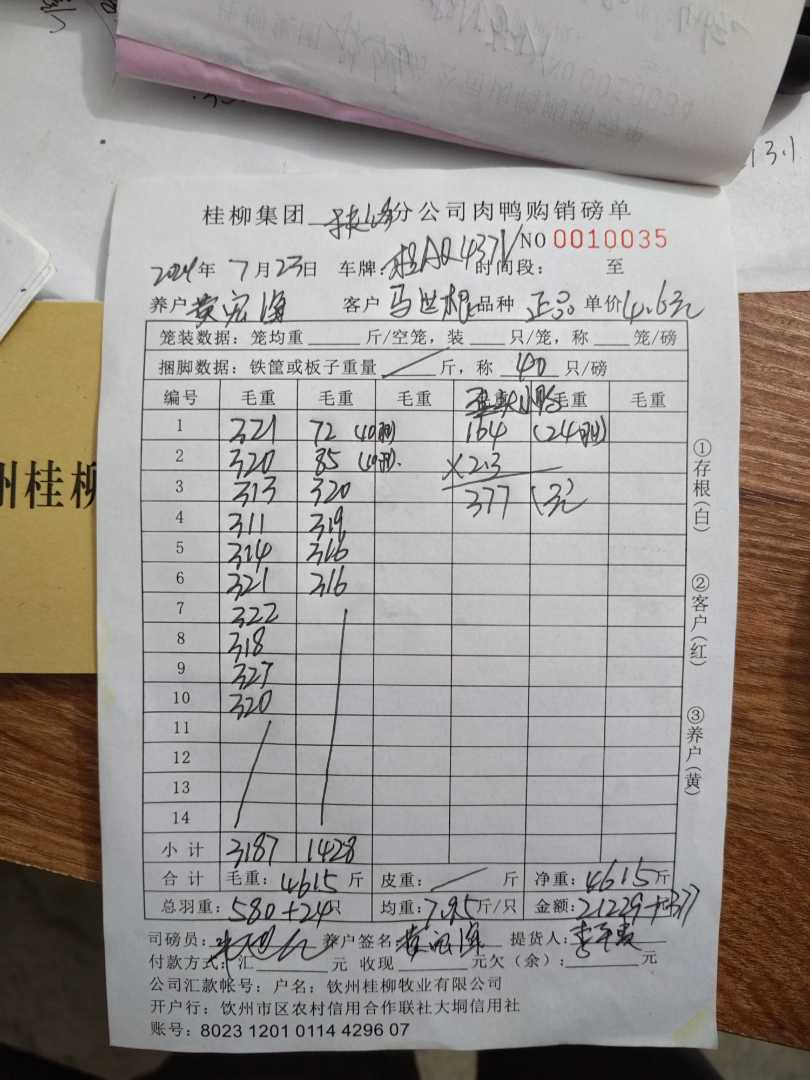 桂柳集团 分公司肉鸭购销磅单
NO 0010035
2024年 7月23日 车牌: 桂AQ4371 时间段: 至
养户 黄宏海 客户 马世根 品种 正品 单价4.6元
笼装数据: 笼均重 斤/空笼, 装 只/笼, 称 笼/磅
捆脚数据: 铁筐或板子重量 斤, 称 40 只/磅
编号 毛重 毛重 毛重 毛重 毛重
1 321 72 (10羽) 164 (24羽)
2 320 85 (10羽). ×2.3
3 313 320 377 (元)
4 311 319
5 314 316
6 321 316
7 322
8 318
9 327
10 320
11
12
13
14
小计 3187 1428
合计 毛重: 4615斤 皮重: 斤 净重: 4615斤
总羽重: 580+24只 均重: 7.95斤/只 金额: 21229+377
司磅员: 养户签名: 黄宏海 提货人:
付款方式: 汇 元 收现 元欠(余): 元
公司汇款帐号: 户名: 钦州桂柳牧业有限公司
开户行: 钦州市区农村信用合作联社大垌信用社
账号: 8023 1201 0114 4296 07
①存根(白)
②客户(红)
③养户(黄)
州桂柳
13.1